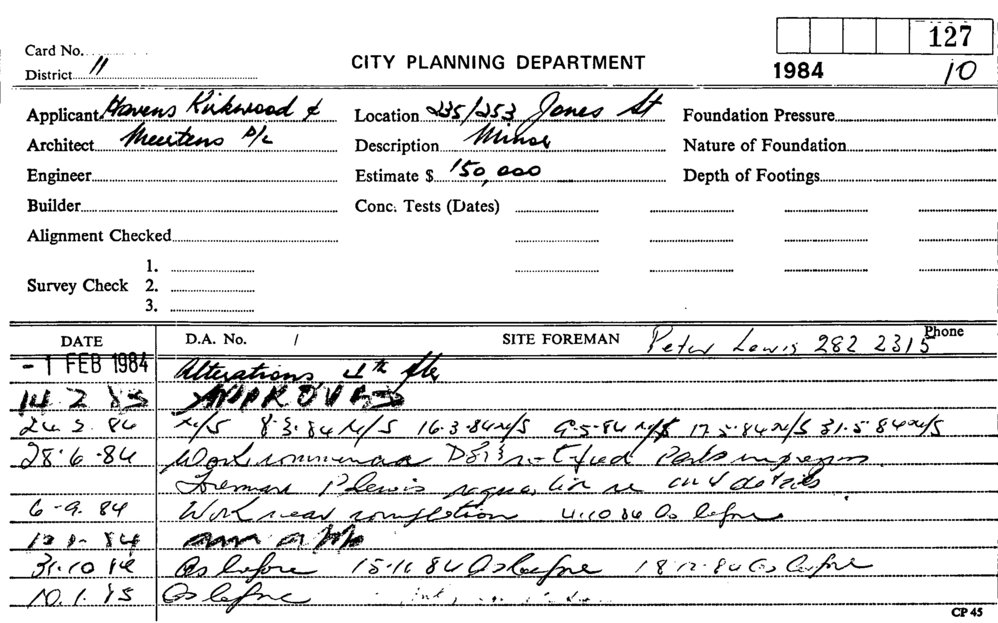 127
Card No.
CITY PLANNING DEPARTMENT
District 11
1984 10
Applicant Kirkwood & Location 235/253 Jones St Foundation Pressure
Architect Meertens P/L Description Minor Nature of Foundation
Engineer Estimate $ 150,000 Depth of Footings
Builder Conc. Tests (Dates)
Alignment Checked
1.
Survey Check 2.
3.
DATE D.A. No. / SITE FOREMAN Peter Lewis 282 2315 Phone
- 1 FEB 1984 Alterations 4th flr
APPROVED
24. 2. 84 N/S 8.3.84 N/S 16.3.84 N/S 9.5.84 N/S 17.5.84 N/S 31.5.84 N/S
28.6.84 Work
Foreman P Lewis details
6-9. 84 Work near completion 4.10.84 As before
31.10 84 As before 15.11.84 As before 18.12.84 As before
10.1.85 As before
CP 45